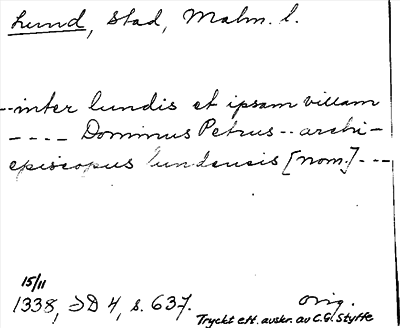 Lund, stad, Malm. l.
--inter lundis et ipsam villam
---- Dominus Petrus -- archi-
episcopus lundensis [nom.] ---
15/11
1338, SD 4, s. 637. orig.
Tryckt eft. avskr. av C.G. Styffe